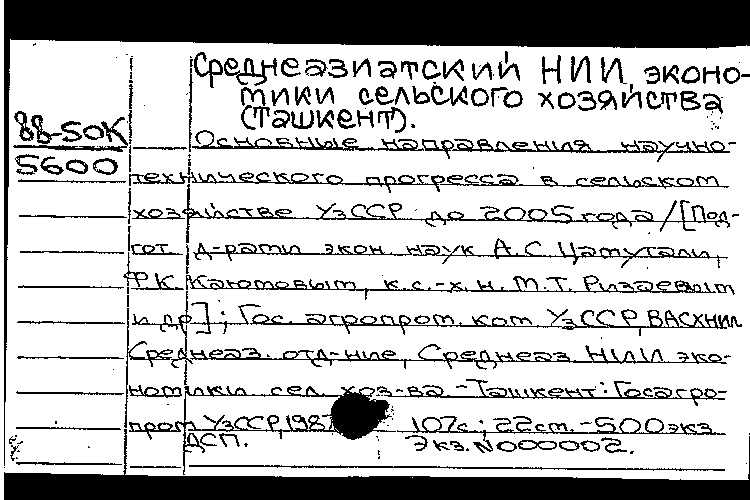 Среднеазиатский НИИ эконо-
мики сельского хозяйства
(Ташкент).
88-50К
5600
Основные направления научно-
технического прогресса в сельском
хозяйстве УзССР до 2005 года / [Под-
гот. д-рами экон. наук А.С. Цамутали,
Ф.К. Каюмовым, к.с.-х.н. М.Т. Ризаевым
и др.]; Гос. агропром. ком. УзССР, ВАСХНИЛ
Среднеаз. отд-ние, Среднеаз. НИИ эко-
номики сел. хоз-ва - Ташкент: Госагро-
пром УзССР, 1987 107с.; 22см. - 500экз
ДСП. Экз. N000002.